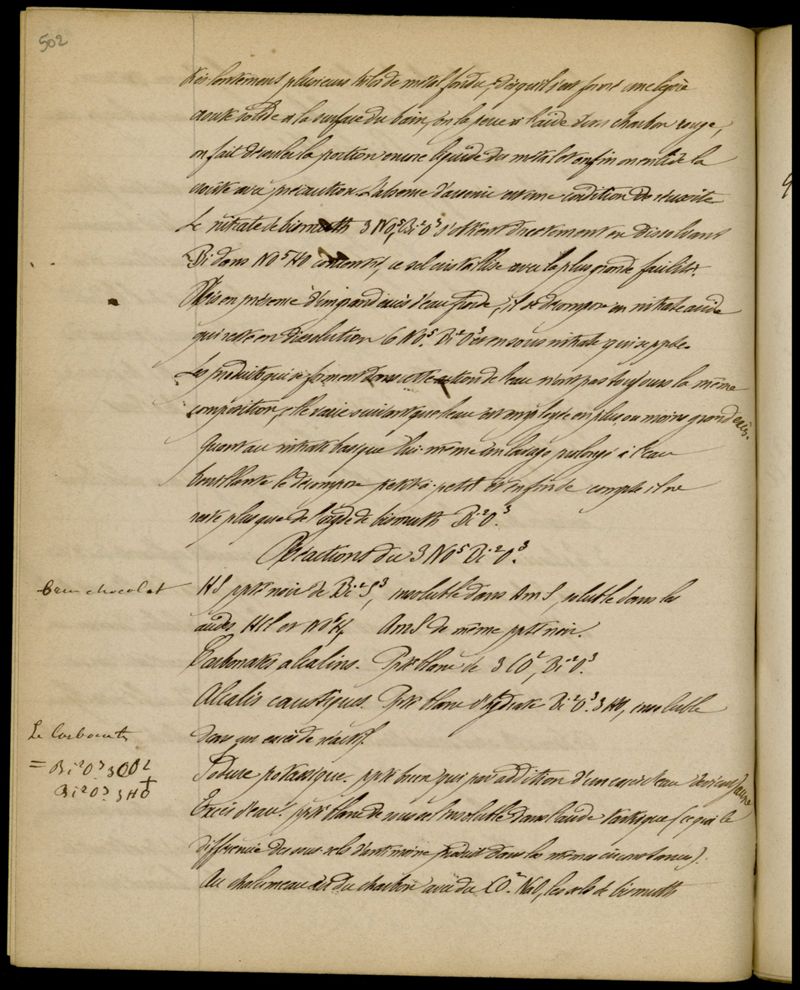 502
très lentement plusieurs kilos de métal fondu, dès qu'il s'est formé une légère
croûte solide à la surface du bain, on la perce à l'aide d'un charbon rouge,
on fait écouler la portion encore liquide du métal et enfin on enlève la
croûte avec précaution. L'absence d'arsenic est une condition de réussite
Le nitrate de bismuth 3 NO⁵, Bi²O³ s'obtient directement en dissolvant
Bi dans NO⁵HO concentré, ce sel cristallise avec la plus grande facilité.
Mis en présence d'un grand excès d'eau froide, il se décompose en nitrate acide
qui reste en dissolution 6 NO⁵. Bi²O³ et en sous nitrate qui se ppte.
Les produits qui se forment dans cette action de l'eau n'ont pas toujours la même
composition, elle varie suivant que l'eau est employée en plus ou moins grand excès.
Quant au nitrate basique lui-même un lavage prolongé à l'eau
bouillante le décompose petit à petit et en fin de compte il ne
reste plus que de l'oxyde de bismuth Bi²O³
Réactions du 3 NO⁵ Bi²O³.
brun chocolat
HS ppté noir de Bi²S³, insoluble dans AmS, soluble dans les
acides HCl et NO⁵H. AmS de même ppté noir.
Carbonates alcalins. Ppté blanc de 3 CO², Bi²O³
Alcalis caustiques. Ppté blanc d'hydrate Bi²O³ 3 HO, insoluble
dans un excès de réactif.
Le Carbonate
= Bi²O³ 3CO2
+
Bi²O³ 3HO
Iodure potassique. ppté brun qui par addition d'un excès d'eau devient jaune
Excès d'eau. ppté blanc de sous sel insoluble dans l'acide tartrique (ce qui le
différencie des sous sels d'antimoine produit dans les mêmes circonstances).
Au chalumeau sur du charbon avec du CO² NaO, les sels de bismuth